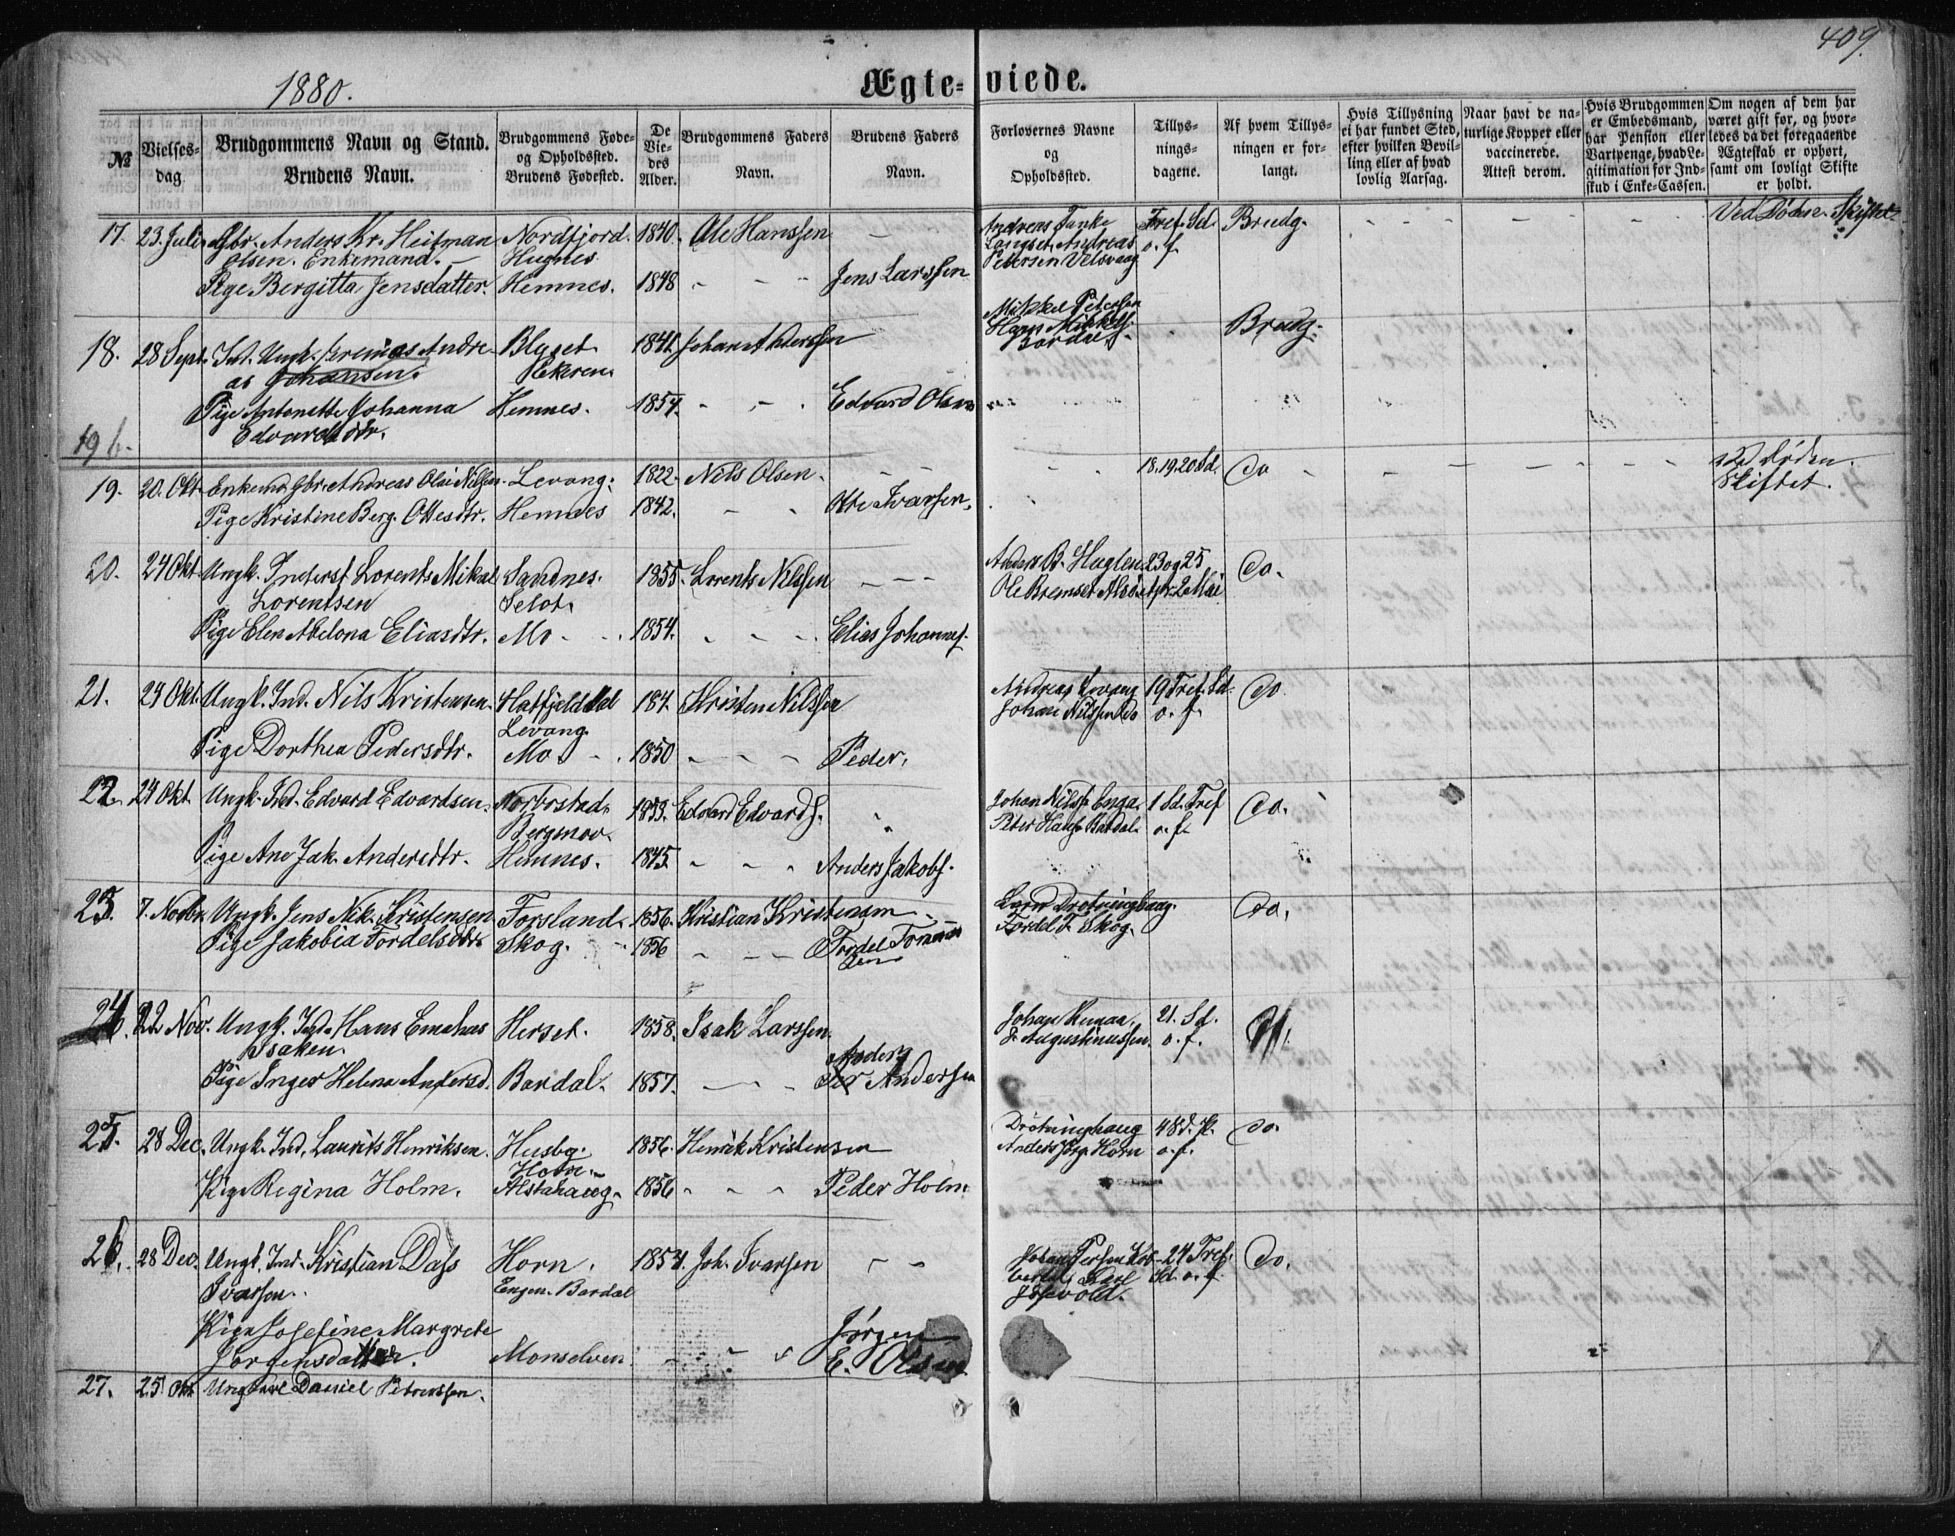 409.
1880.
Ægteviede.
№
Vielsesdag.
Brudgommens Navn og Stand.
Brudens Navn.
Brudgommens Føde- og Opholdssted.
Brudens Fødested.
De Viedes Alder.
Brudgommens Faders Navn.
Brudens Faders Navn.
Forlovernes Navne og Opholdssted.
Tillysningsdagene.
Af hvem Tillysningen er forlangt.
Hvis Tillysning ei har fundet Sted, efter hvilken Bevilling eller af hvad lovlig Aarsag.
Naar havt de naturlige Kopper eller vaccinerede. Attest derom.
Hvis Brudgommen er Embedsmand, har Pension eller Vartpenge, hvad Legitimation for Indskud i Enke-Cassen.
Om nogen af dem har været gift før, og hvorledes da det foregaaende Ægteskab er ophørt, samt om lovligt Skifte er holdt.
17. 23. Juli Gbr. Anders Kr. Heitman Nordfjord. 1840. Ole Hanssen
Olsen. Enkemand. Hugnes
Pige Bergitta Jensdatter. Hemnes. 1848 Jens Larssen
Andreas Tanke
Langset, Andreas
Petersen Velsvaag
Tref. Sd.
o. f.
Brudg.
Ved Døden. Skiftet
18. 28 Sept. Ind. Ungk. Andre- Johan Anderssen
as Johansen.
Pige Antonette Johanna Hemnes. 1854. Edvard Olsen
Edvardsdtr.
Mikkel Petersen
Hans Mikkels.
Bardal
Brudg.
196.
19. 20. Okt. Enkemd. Gbr. Andreas Olai Nilssen Levang. 1822. Nils Olsen.
Pige Kristine Berg. Ottesdtr. Hemnes 1842. Otte Ivarsen.
18. 19. 20 Sd. Do
Ved Døden.
Skiftet.
20. 24 Okt. Ungk. Inderst Lorents Mikal Sandnes. 1855. Lorents Nilssen
Lorentsen Selot.
Pige Elen Abelona Eliasdtr. Mo 1854. Elias Johannes.
Anders B. Huglen 23 og 25
Ole Bremset 2 Mai
Do.
21. 24 Okt. Ungk. Ind. Nils Kristensen. Hatfjelddal 184. Kristen Nilssen
Levang
Pige Dorthea Pedersdtr. Mo 1850 Peder.
Andreas Levang 19 Tref. Sd.
Johan Nilssen Do o. f.
Do.
22. 24 Okt. Ungk. Ind. Edvard Edvardsen. 1853. Edvard Edvards.
Pige Ane Jak. Andersdtr. Hemnes. 1845. Anders Jakobs.
Johan Nilss. Enga. 1 Sd. Tref
Peter Hans. Bardal. o. f.
Do.
23. 7. Novbr. Ungk. Jens Nik. Kristensen Forsland. 1856. Kristian Kristensen
Pige Jakobia Tordelsdtr. Skog. 1856 Tordel
Drotninghaug.
Tordel T. Skog.
Do.
24. 22 Nov. Ungk. Ind. Hans Emahus Herset. 1858. Isak Larssen.
Isaksen.
Pige Inger Helena Andersd. Bardal. 1857. Anders
Andersen
Johan 21. Sd.
Augustinussen. o. f.
25. 28 Dec. Ungk. Ind. Laurits Henriksen. Husby. 1856. Henrik Kristensen
Horn.
Pige Regina Holm. Alstahaug. 1856 Peder Holm
Drotninghaug
Anders Jørg. Horn o. f.
Do.
26. 28 Dec. Ungk. Ind. Kristian Dass Horn. 1854. Joh. Ivarsen
Ivarsen. Engen. Bardal
Pige Josefine Margrete Jørgen
Jørgensdatter. Monselven E. Olsen
24 Tref.
Sd. o. f.
Do.
27. 25 Okt. Ungkarl Daniel Petersen.